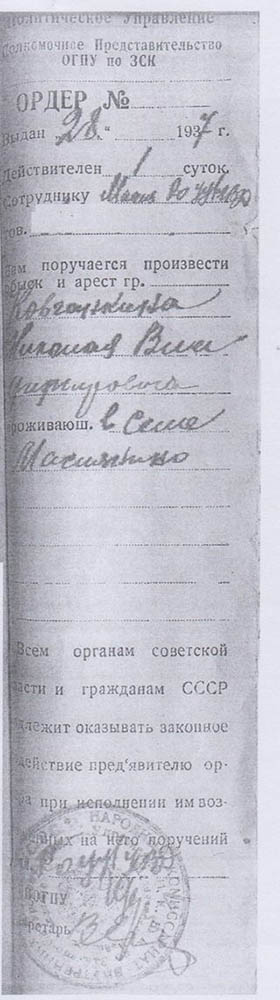 олитическое Управление
олномочное Представительство
ОГПУ по ЗСК
ОРДЕР №
Выдан 28 " 1937 г.
Действителен 1 суток.
Сотруднику
тов.
им поручается произвести
обыск и арест гр.
Ковганкина
Николая Вла
димировича
роживающ. в селе
Маслянино
Всем органам советской
ласти и гражданам СССР
длежит оказывать законное
действие пред'явителю ор-
ра при исполнении им воз-
нных на него поручений
ОГПУ
кретарь